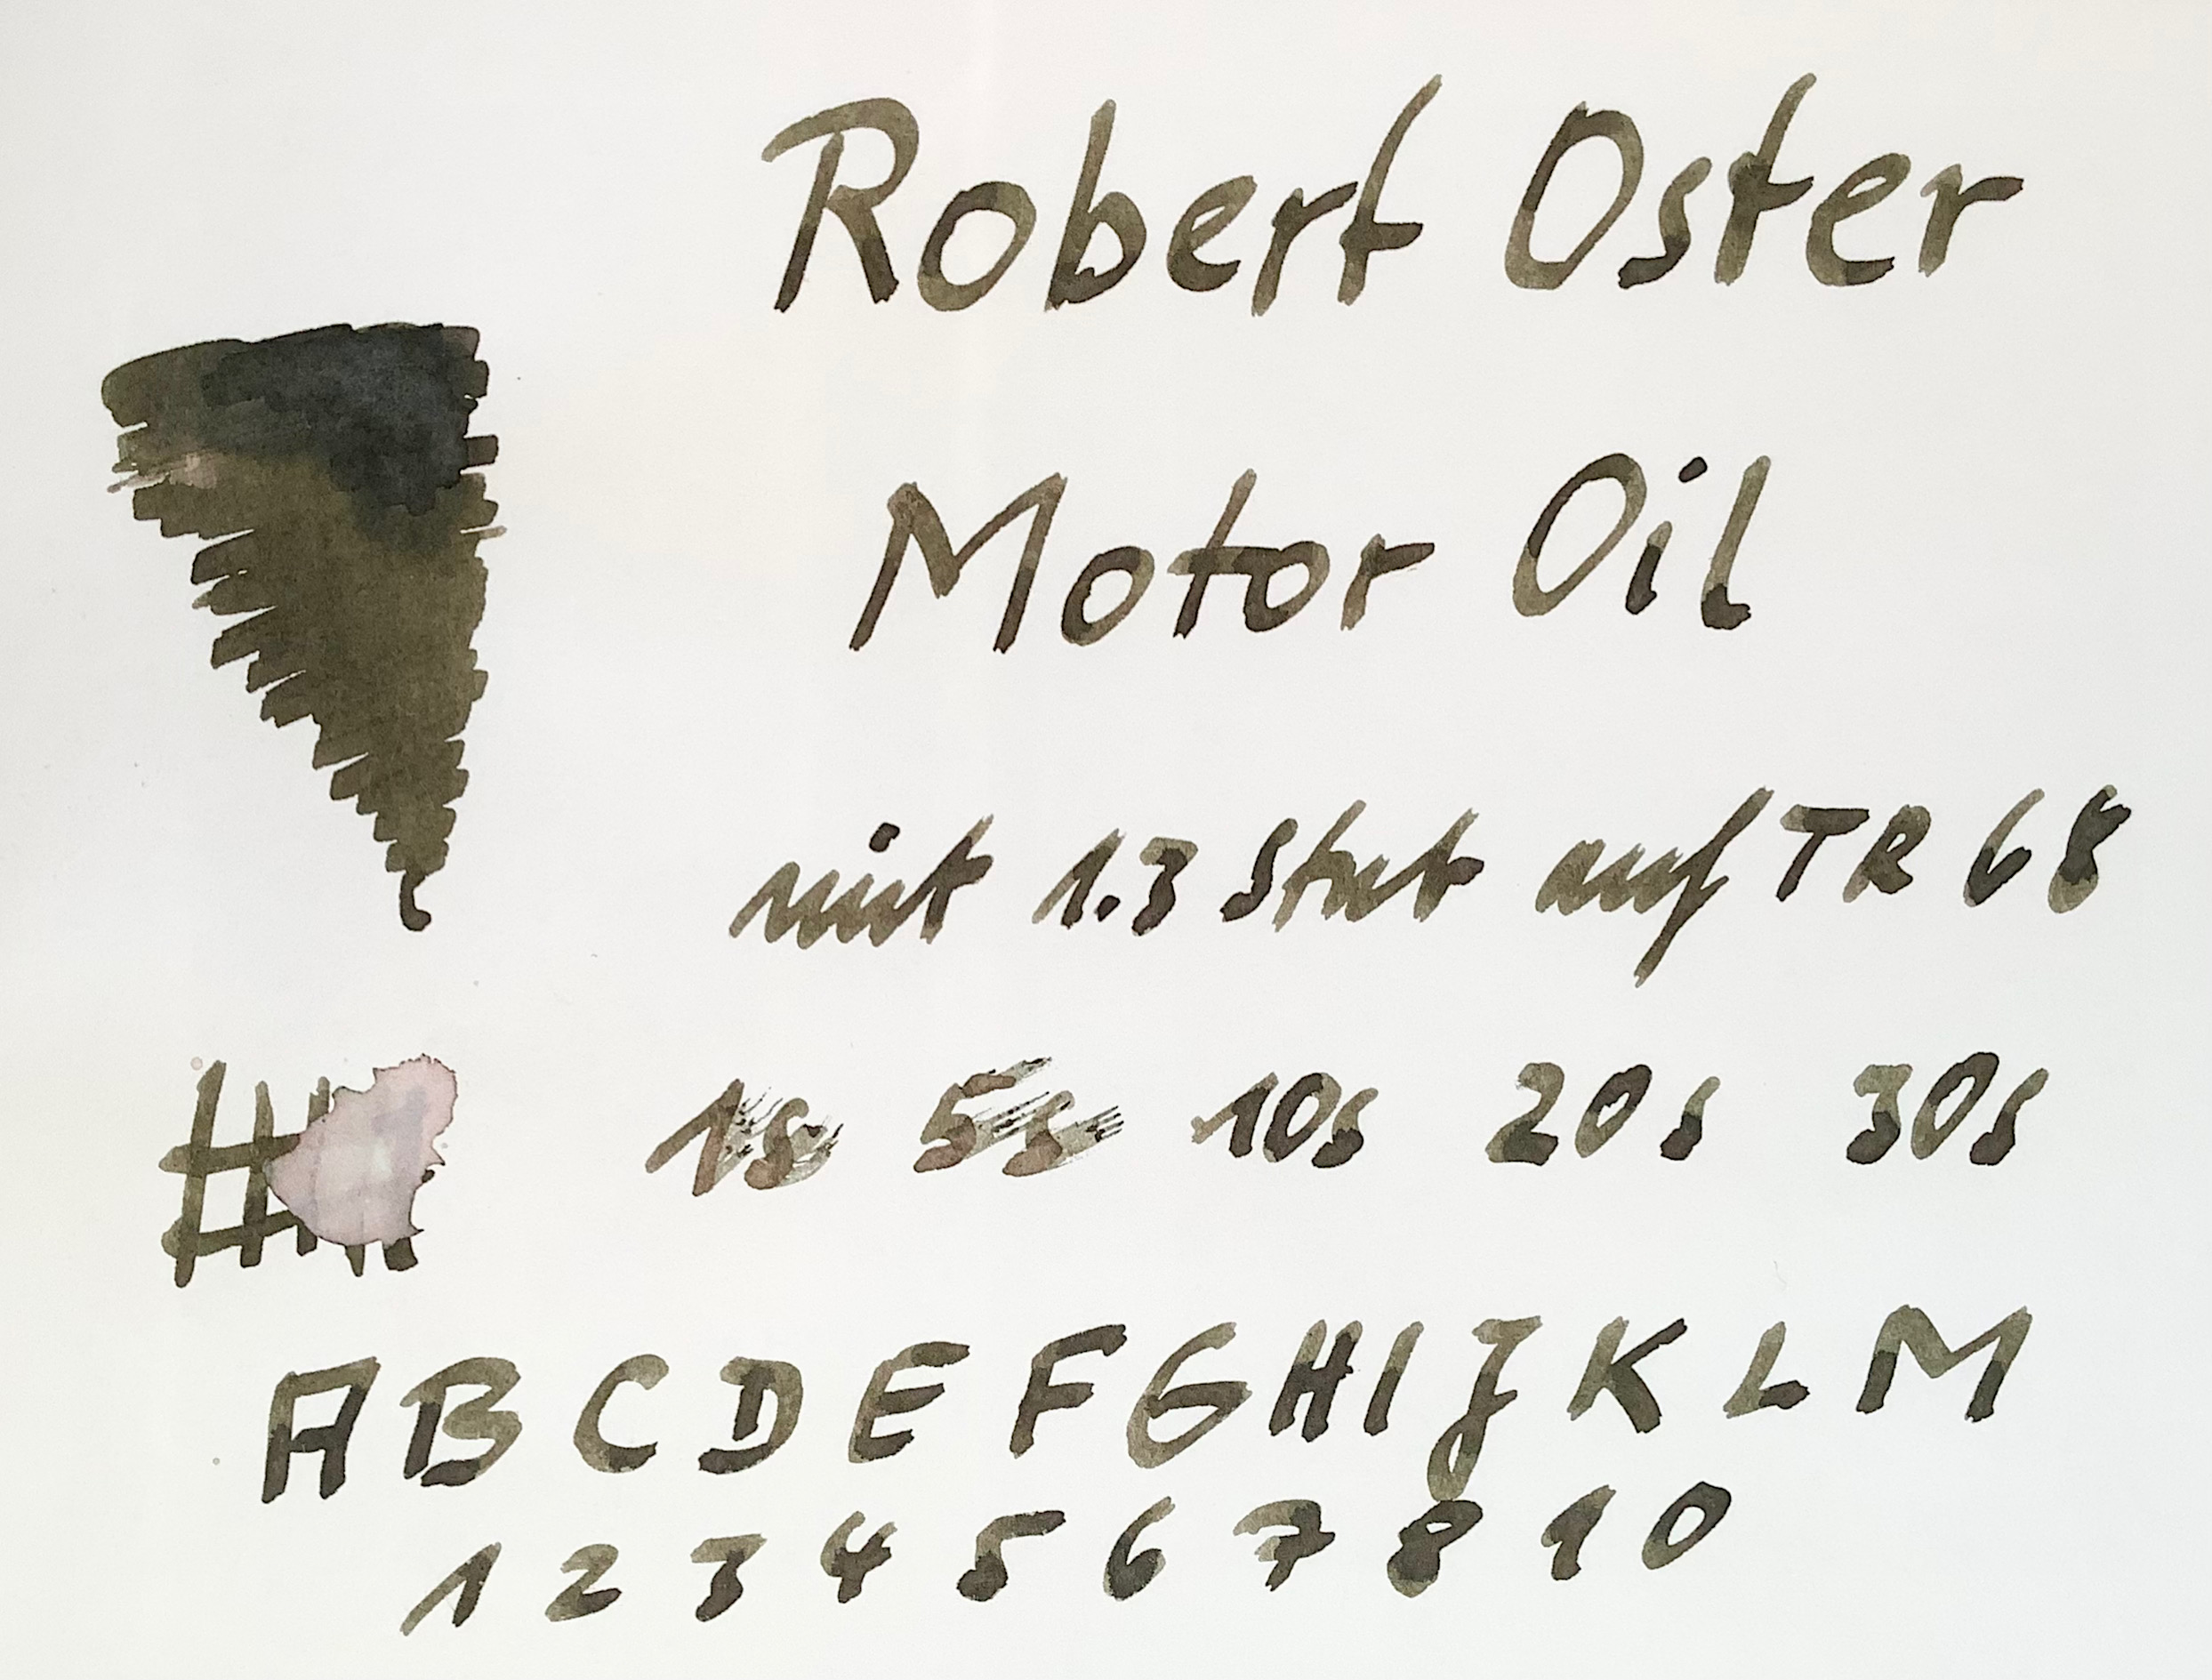 Robert Oster
Motor Oil
mit 1.3 Stub auf TR 68
1s 5s 10s 20s 30s
A B C D E F G H I J K L M
1 2 3 4 5 6 7 8 9 0